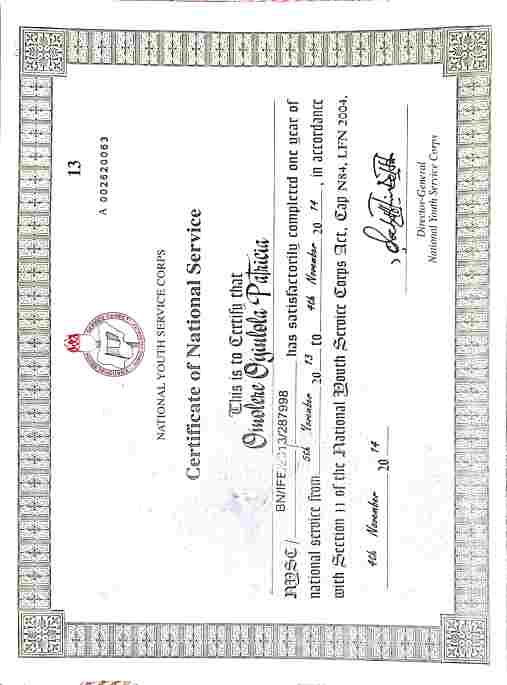 13
A 002620063
NATIONAL YOUTH SERVICE CORPS
Certificate of National Service
This is to Certify that
Omolere Oyinlola Patricia
NYSC / BN/IFE/2013/287998 has satisfactorily completed one year of
national service from 5th November 20 13 to 4th November 20 14, in accordance
with Section 11 of the National Youth Service Corps Act, Cap N84, LFN 2004.
4th November 20 14
Director-General
National Youth Service Corps